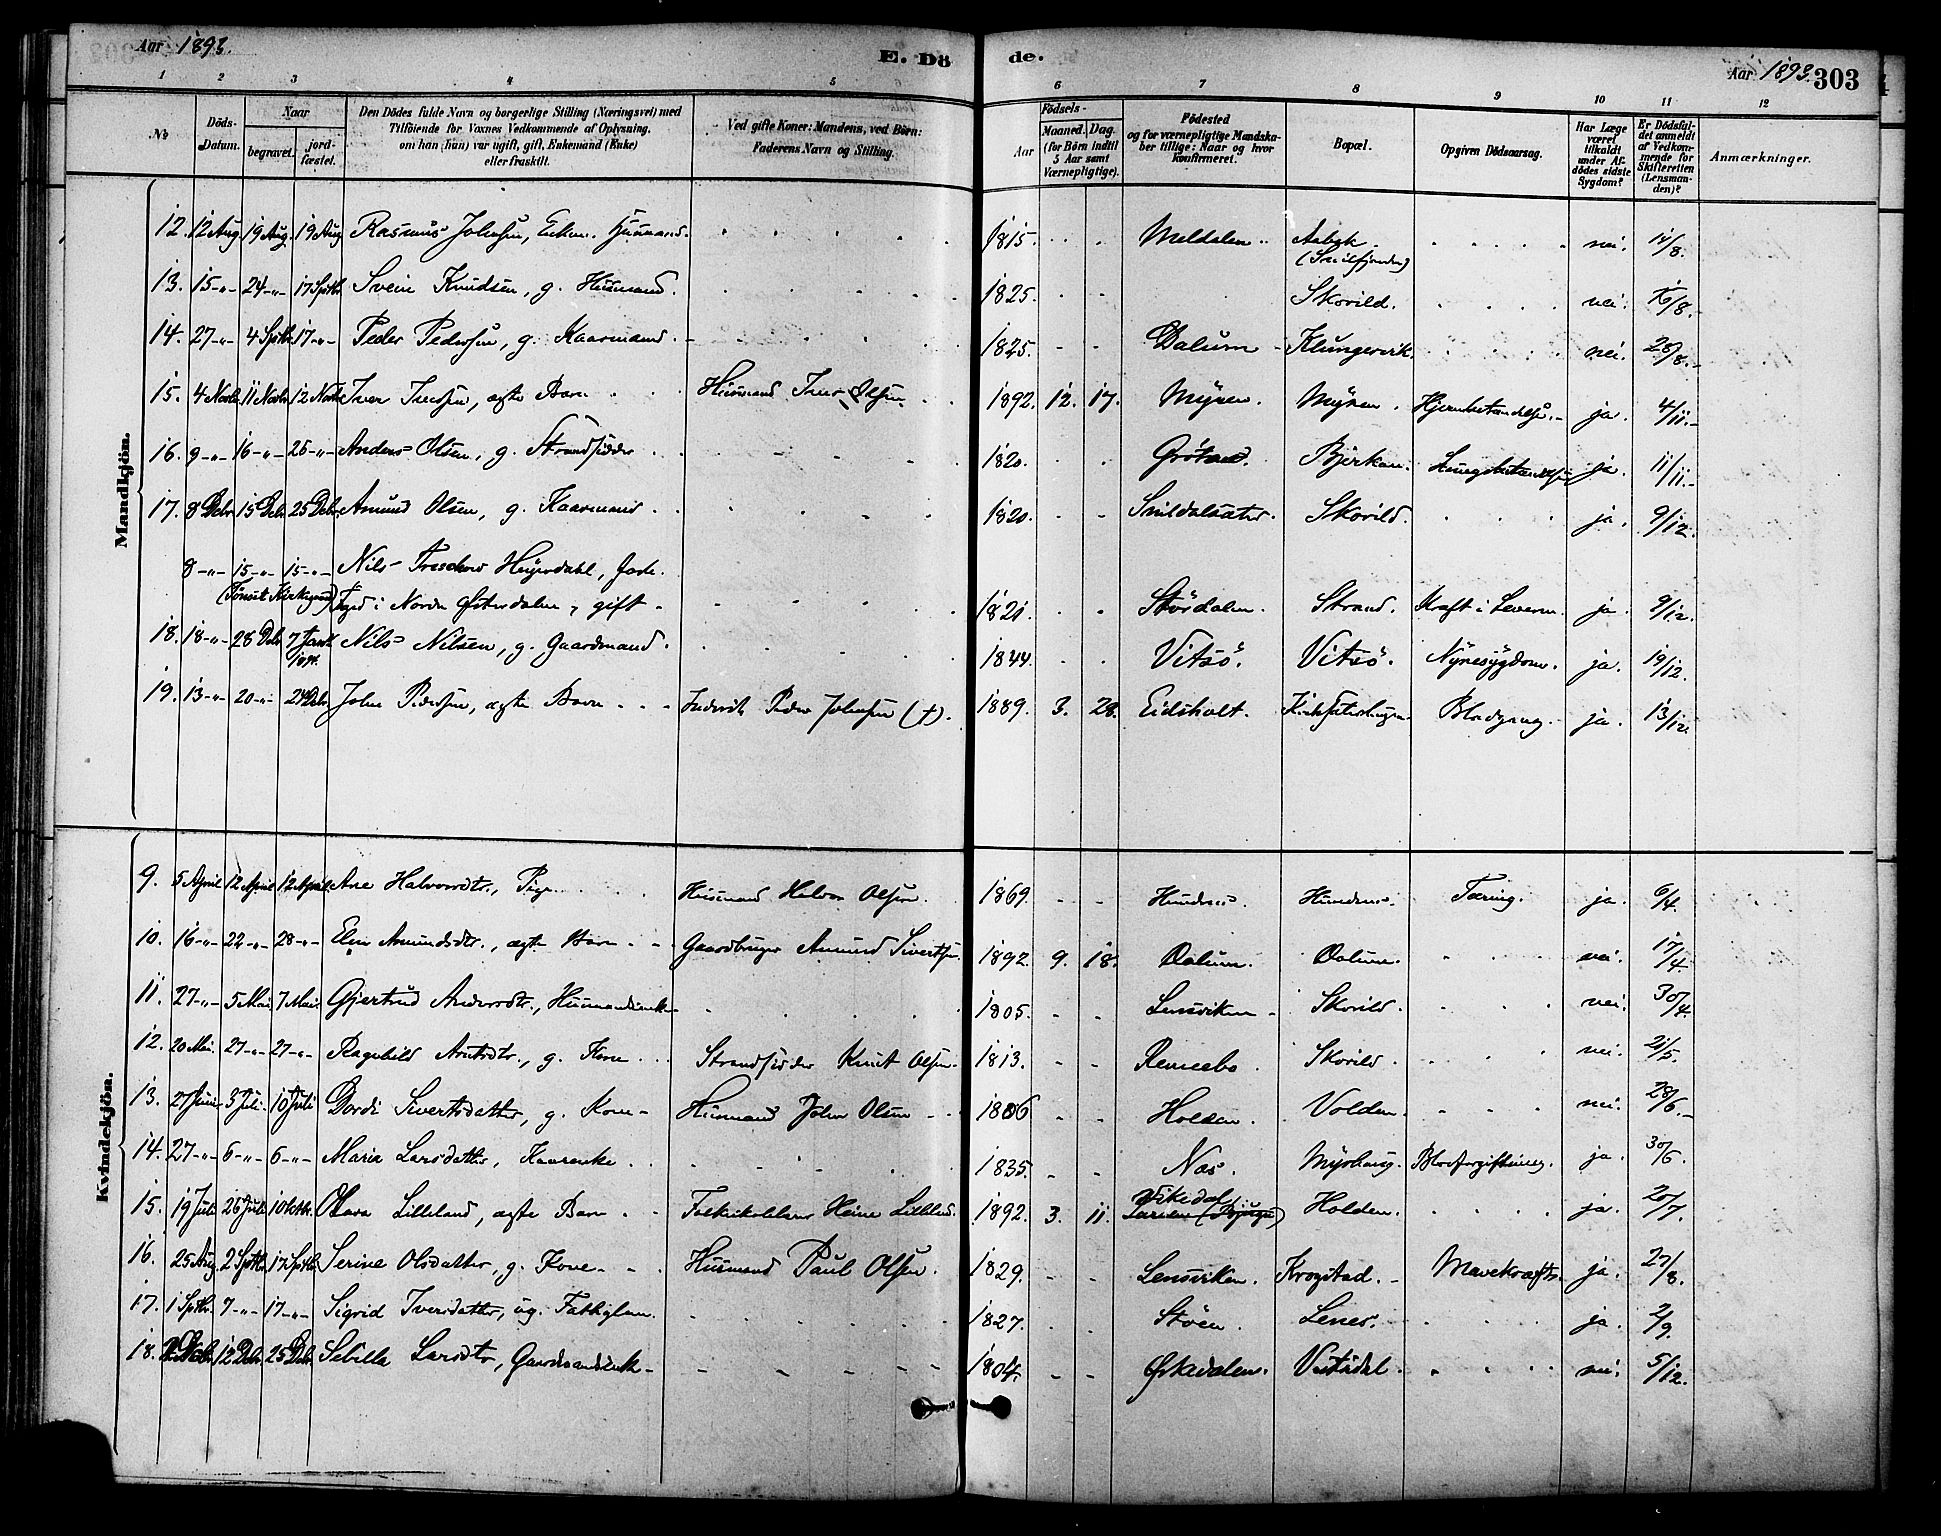 Aar 1893. E. Dö de. Aar 1893. 303
1 2 3 4 5 6 7 8 9 10 11 12
No
Döds-Datum.
Naar begravet. jord-fæstet.
Den Dödes fulde Navn og borgerlige Stilling (Næringsvei) med Tilföiende for Voxnes Vedkommende af Oplysning, om han (hun) var ugift, gift, Enkemand (Enke) eller fraskilt.
Ved gifte Koner: Mandens, ved Börn: Faderens Navn og Stilling.
Födsels-
Aar Maaned. Dag. (for Börn indtil 5 Aar samt Værnepligtige).
Födested og for værnepligtige Mandskaber tillige: Naar og hvor konfirmeret.
Bopæl.
Opgiven Dödsaarsag.
Har Læge været tilkaldt under Afdödes sidste Sygdom?
Er Dödsfaldet anmeldt af Vedkommende for Skifteretten (Lensmanden)?
Anmærkninger.
Mandkjön.
12. 12 Aug. 19 Aug. 19 Aug. Rasmus Johnsen, Enkem. Husmand. 1815. Meldalen. Aabyk. (Snilfjorden) nei. 14/8.
13. 15 -"- 24 -"- 17 Sptb. Svein Knudsen, g. Husmand. 1825. Skorild. nei. 16/8.
14. 27 -"- 4 Sptb. 17 -"- Peder Pedersen, g. Kaarmand. 1825. Dalum Klungervik. nei. 28/8.
15. 4 Novb. 11 Novb. 12 Novb. Iver Iversen, ægte Barn Husmand Iver Olsen. 1892. 12. 17. Myren. Myren. Hjernebetændelse. ja. 4/11.
16. 9 -"- 16 -"- 26 -"- Anders Olsen, g. Strandsidder 1820. Björkan. Lungebetændelse ja. 11/11.
17. 8 Debr. 15 Debr. 25 Debr. Amund Olsen, g. Kaarmand. 1820. Snildalsæter. Skorild. ja. 9/12.
8 -"- 15 -"- 15 -"- Nils Treschow Heyerdahl,
(Tönset Kirkegaard) Foged i Nordre Østerdalen, gift. 1821. Stördalen. Strand. Kræft i Leveren. ja. 9/12.
18. 18 -"- 28 Debr. 7 Janr. 1894. Nils Nilsen, g. Gaardmand. 1844. Vitsö. Vitsö. Nyresygdom. ja. 19/12.
19. 13 -"- 20 -"- 24 Debr. John Pedersen, ægte Barn Inderst Peder Johnsen (†). 1889. 3. 28. Eidsholt. Blodgang. ja. 13/12.
Kvindekjön.
9. 5 April 12 April 12 April Ane Halvorsdtr., Pige Husmand Halvor Olsen. 1869. Hundnes. Hundnes. Tæring. ja. 6/4.
10. 16 -"- 22 -"- 28 -"- Elen Amundsdtr., ægte Barn Gaardbruger Amund Sivertsen. 1892. 9. 18. Dalum. Dalum. nei. 17/4
11. 27 -"- 5 Mai 7 Mai. Gjertrud Andersdtr., Husmandsenke 1805. Lensviken Skorild. nei. 30/4.
12. 20 Mai. 27 -"- 27 -"- Ragnhild Arntsdtr., g. Kone Strandsidder Knut Olsen. 1813. Rennebo Skorild. nei. 21/5.
13. 27 Juni 3 Juli. 10 Juli Dordi Sivertsdatter, g. Kone Husmand John Olsen 1806 Holden. Volden. nei. 28/6.
14. 27 -"- 6 -"- 6 -"- Maria Larsdatter, Kaarenke. 1835. Næs. Myrhaug. Blodforgiftning. ja. 30/6.
15. 19 Juli 26 Juli 10 Lilleland, ægte Barn Heine Lilleland. 1892. 3. 11. Vikedal Holden. ja. 20/7.
16. 25 Aug. 2 Sptb. 17 Sptb. Serine Olsdatter, g. Kone Husmand Paul Olsen. 1829. Lensviken. Krogstad. Mavekræft. ja. 27/8.
17. 1 Sptb. 7 -"- 17 -"- Sigrid Iversdatter, ug. Fattiglem. 1827. Stöen. Lenes. ja. 2/9.
18. 12 Debr. 25 Debr. Sebilla Larsdtr., Gaardmandsenke 1804. Orkedalen. nei. 5/12.